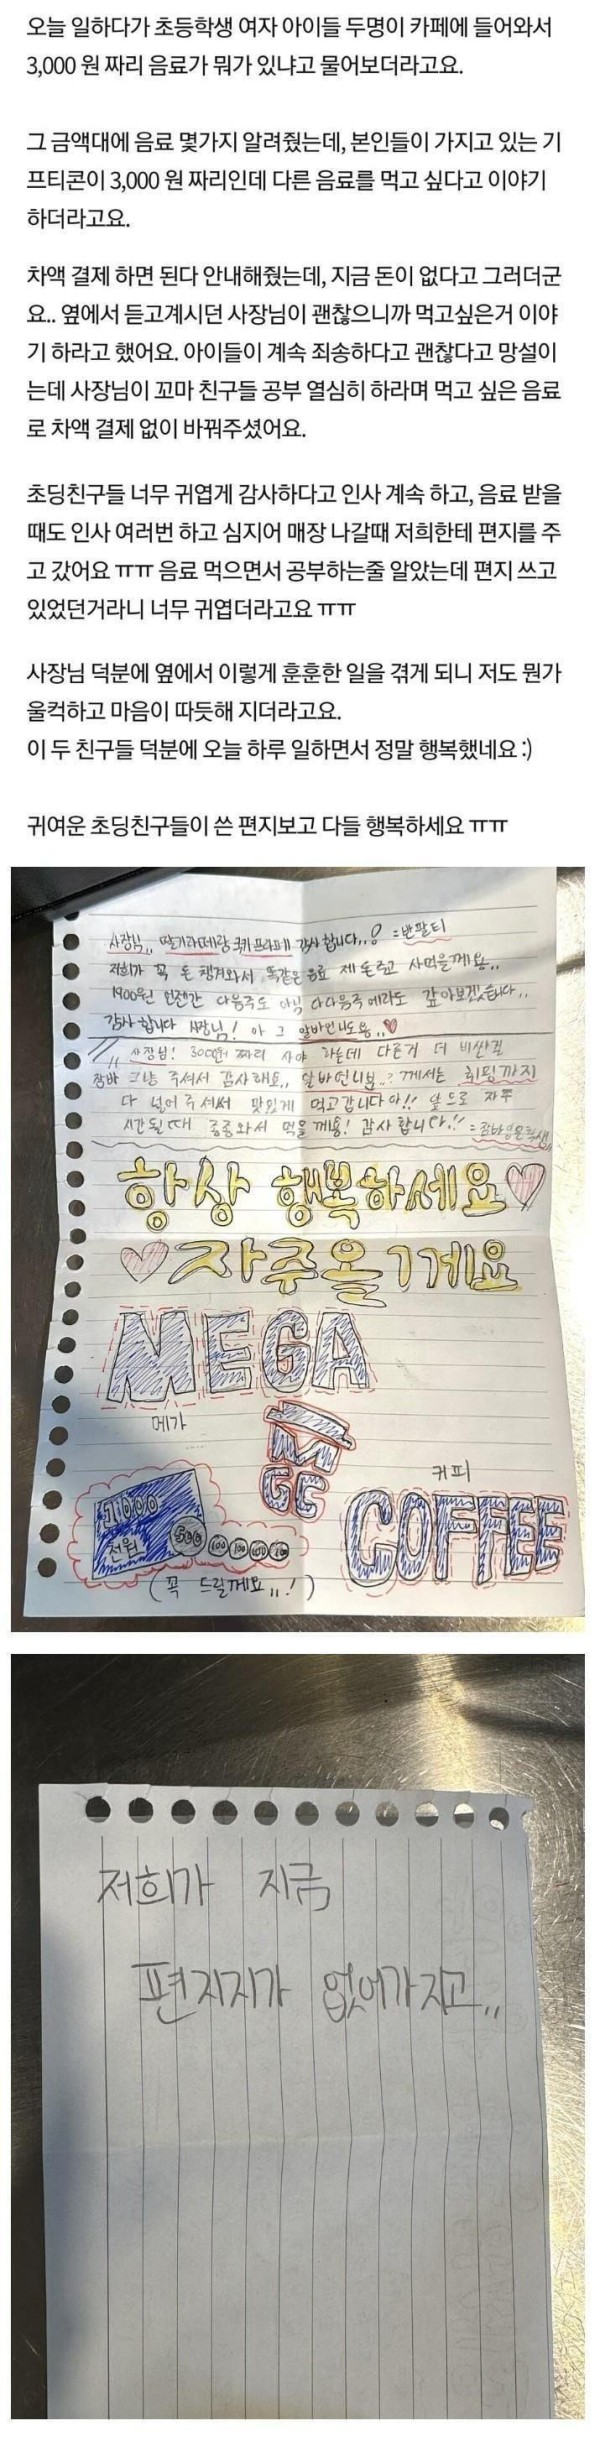 오늘 일하다가 초등학생 여자 아이들 두명이 카페에 들어와서
3,000 원 짜리 음료가 뭐가 있냐고 물어보더라고요.
그 금액대에 음료 몇가지 알려줬는데, 본인들이 가지고 있는 기
프티콘이 3,000 원 짜리인데 다른 음료를 먹고 싶다고 이야기
하더라고요.
차액 결제 하면 된다 안내해줬는데, 지금 돈이 없다고 그러더군
요.. 옆에서 듣고계시던 사장님이 괜찮으니까 먹고싶은거 이야
기 하라고 했어요. 아이들이 계속 죄송하다고 괜찮다고 망설이
는데 사장님이 꼬마 친구들 공부 열심히 하라며 먹고 싶은 음료
로 차액 결제 없이 바꿔주셨어요.
초딩친구들 너무 귀엽게 감사하다고 인사 계속 하고, 음료 받을
때도 인사 여러번 하고 심지어 매장 나갈때 저희한테 편지를 주
고 갔어요 ㅠㅠ 음료 먹으면서 공부하는줄 알았는데 편지 쓰고
있었던거라니 너무 귀엽더라고요 ㅠㅠ
사장님 덕분에 옆에서 이렇게 훈훈한 일을 겪게 되니 저도 뭔가
울컥하고 마음이 따듯해 지더라고요.
이 두 친구들 덕분에 오늘 하루 일하면서 정말 행복했네요 :)
귀여운 초딩친구들이 쓴 편지보고 다들 행복하세요 ㅠㅠ
사장님,, 딸기라떼랑 쿠키프라페 감사합니다,,! =반팔티
저희가 꼭 돈 챙겨와서 똑같은 음료 제 돈주고 사먹을께용,,
1900원 언젠간 다음주도 아닌 다다음주에라도 갚아보겠습니다,,
감사합니다 사장님! 아 그 알바언니도용,,♥
사장님! 3000원 짜리 사야 하는데 다른거 더 비싼걸
잠바 그냥 주셔서 감사해요,, 알바언니분..? 께서는 휘핑까지
다 넣어주셔서 맛있게 먹고갑니다아!! 앞으로 자주
시간될때 종종와서 먹을께용! 감사합니다!! =잠바입은학생
항상 행복하세요♡
♡자주올게요
MEGA
메가
MGC
커피
COFFEE
1000
천원
500 100 100 100 100
(꼭 드릴께요,,!)
저희가 지금
편지지가 없어가지고,,